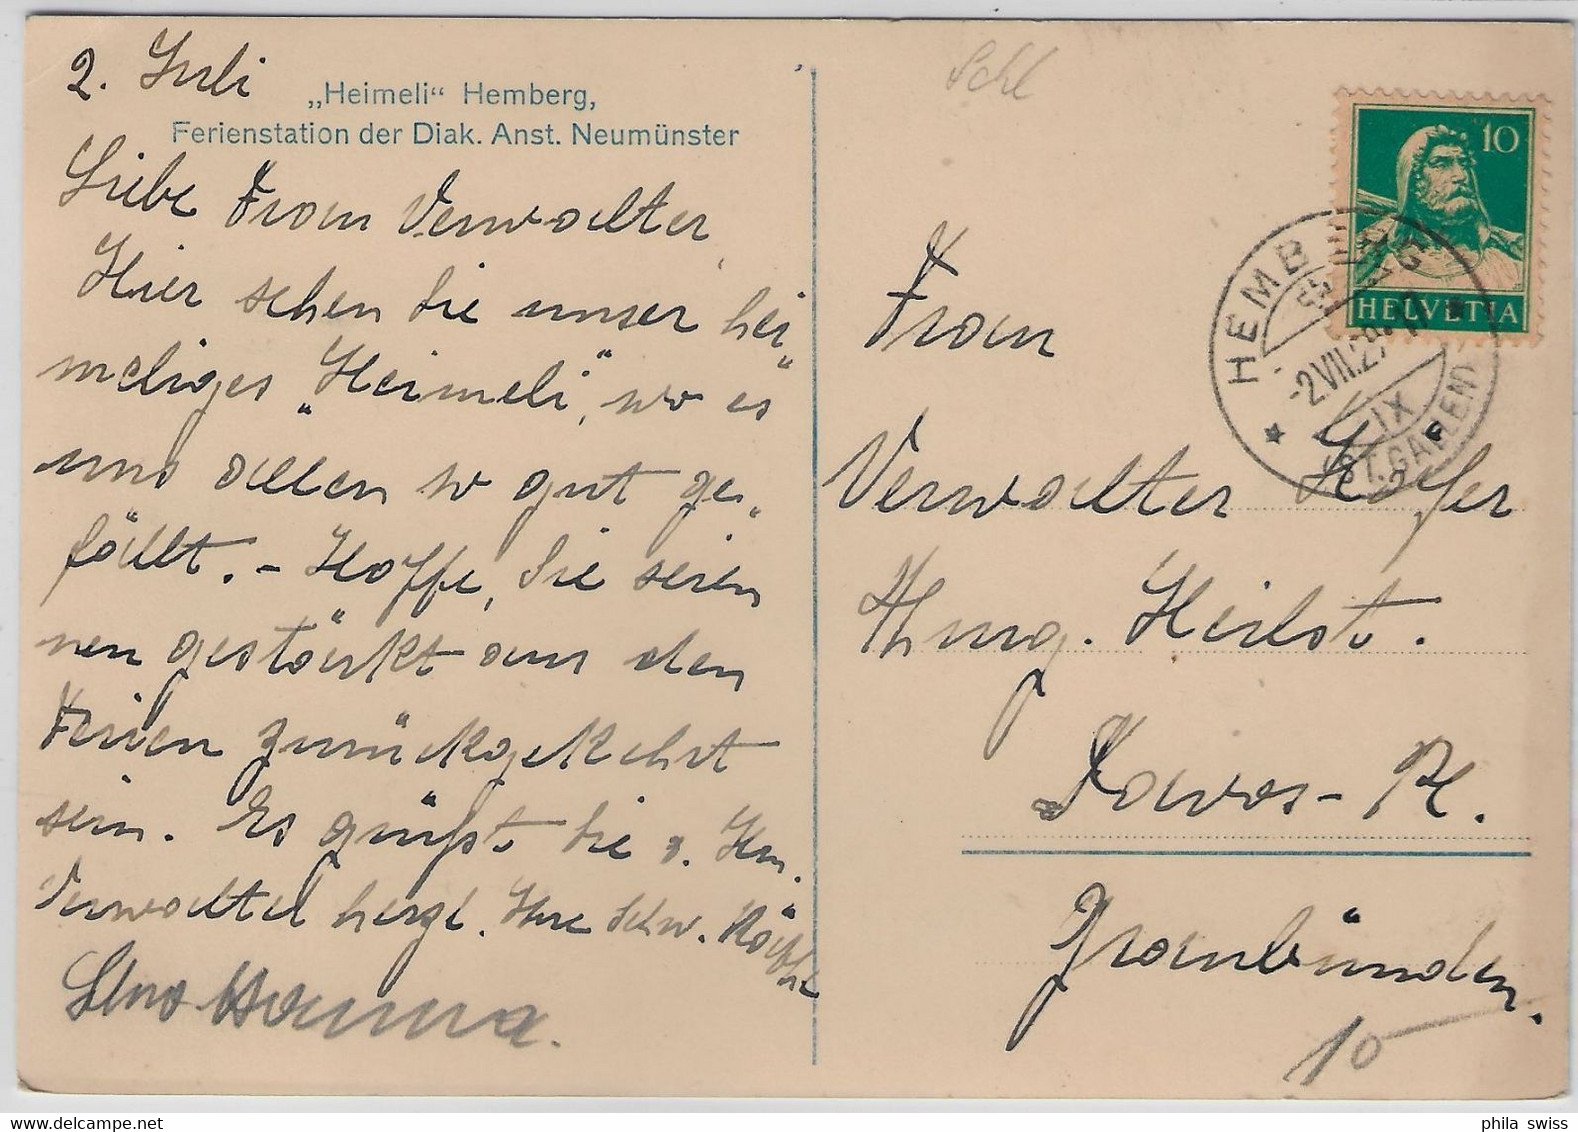 2. Juli
„Heimeli“ Hemberg,
Ferienstation der Diak. Anst. Neumünster
Liebe Frau Verwalter,
Hier sehen Sie unser hei„
meliges „Heimeli“, wo es
uns allen so gut ge„
fällt. - Hoffe, Sie seien
nen gestärkt aus den
Ferien zurückgekehrt
sein. Es grüsst Sie u. Hrn.
Verwalter herzl. Ihre Schw.
Hanna.
Schl
10
HELVETIA
HEMBERG
-2.VII.29
IX
(ST. GALLEN)
Frau
Verwalter Hofer
Thurg. Heilst.
Davos-Pl.
Graubünden.
10
phila swiss